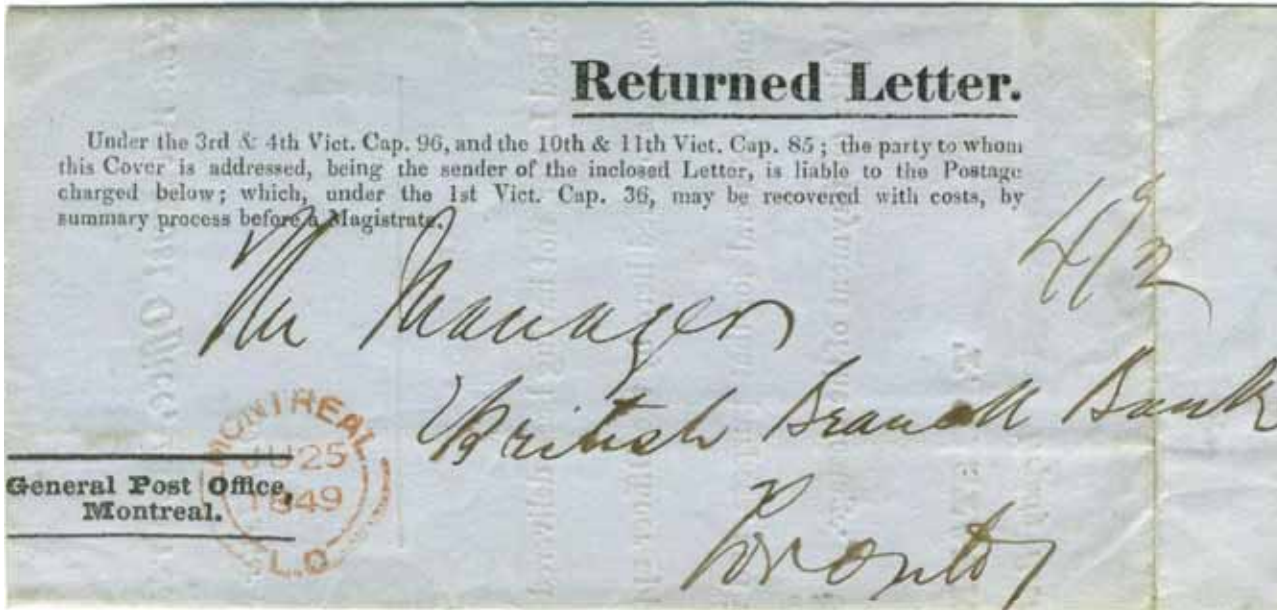 Returned Letter.
Under the 3rd & 4th Vict. Cap. 96, and the 10th & 11th Vict. Cap. 85; the party to whom
this Cover is addressed, being the sender of the inclosed Letter, is liable to the Postage
charged below; which, under the 1st Vict. Cap. 36, may be recovered with costs, by
summary process before a Magistrate.
The Manager
British Branch Bank
Toronto
MONTREAL
25
1849
L.C
General Post Office,
Montreal.